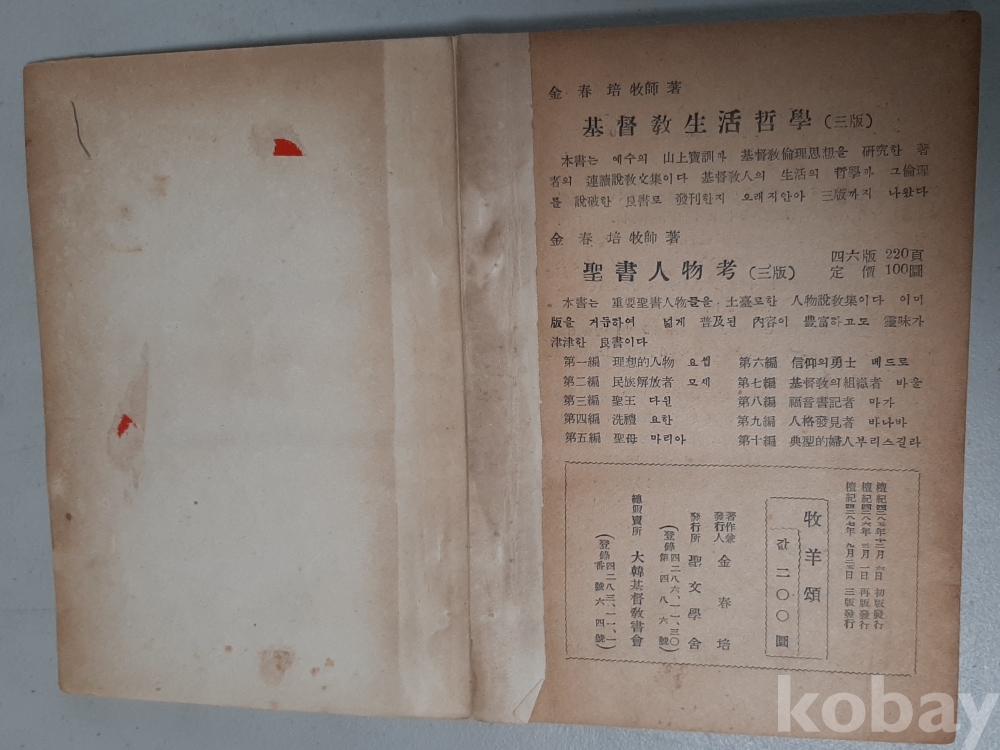 金春培 牧師 著
基督敎生活哲學 (三版)
本書는 예수의 山上寶訓과 基督敎倫理思想을 硏究한 著
者의 連讀說敎文集이다 基督敎人의 生活의 哲學과 그倫理
를 說破한 良書로 發刊한지 오래지안아 三版까지 나왔다
金春培 牧師 著
聖書人物考 (三版)
四六版 220頁
定價 100圜
本書는 重要聖書人物들을 土臺로한 人物說敎集이다 이미
版을 거듭하여 넓게 普及된 內容이 豊富하고도 靈味가
津津한 良書이다
第一編 理想的人物 요셉
第二編 民族解放者 모세
第三編 聖王 다윗
第四編 洗禮 요한
第五編 聖母 마리아
第六編 信仰의勇士 베드로
第七編 基督敎의組織者 바울
第八編 福音書記者 마가
第九編 人格發見者 바나바
第十編 典型的婦人부리스길라
檀紀四二八五年十二月 日 初版發行
檀紀四二八六年 月一日 再版發行
檀紀四二八七年 九月 日 三版發行
牧羊頌
값 二〇〇圜
著作兼發行人 金春培
發行所 聖文學舍
(登錄四二八六、一一、三〇 第四八六號)
總販賣所 大韓基督敎書會
(登錄四二八三、一一、一 番號六四號)
kobay